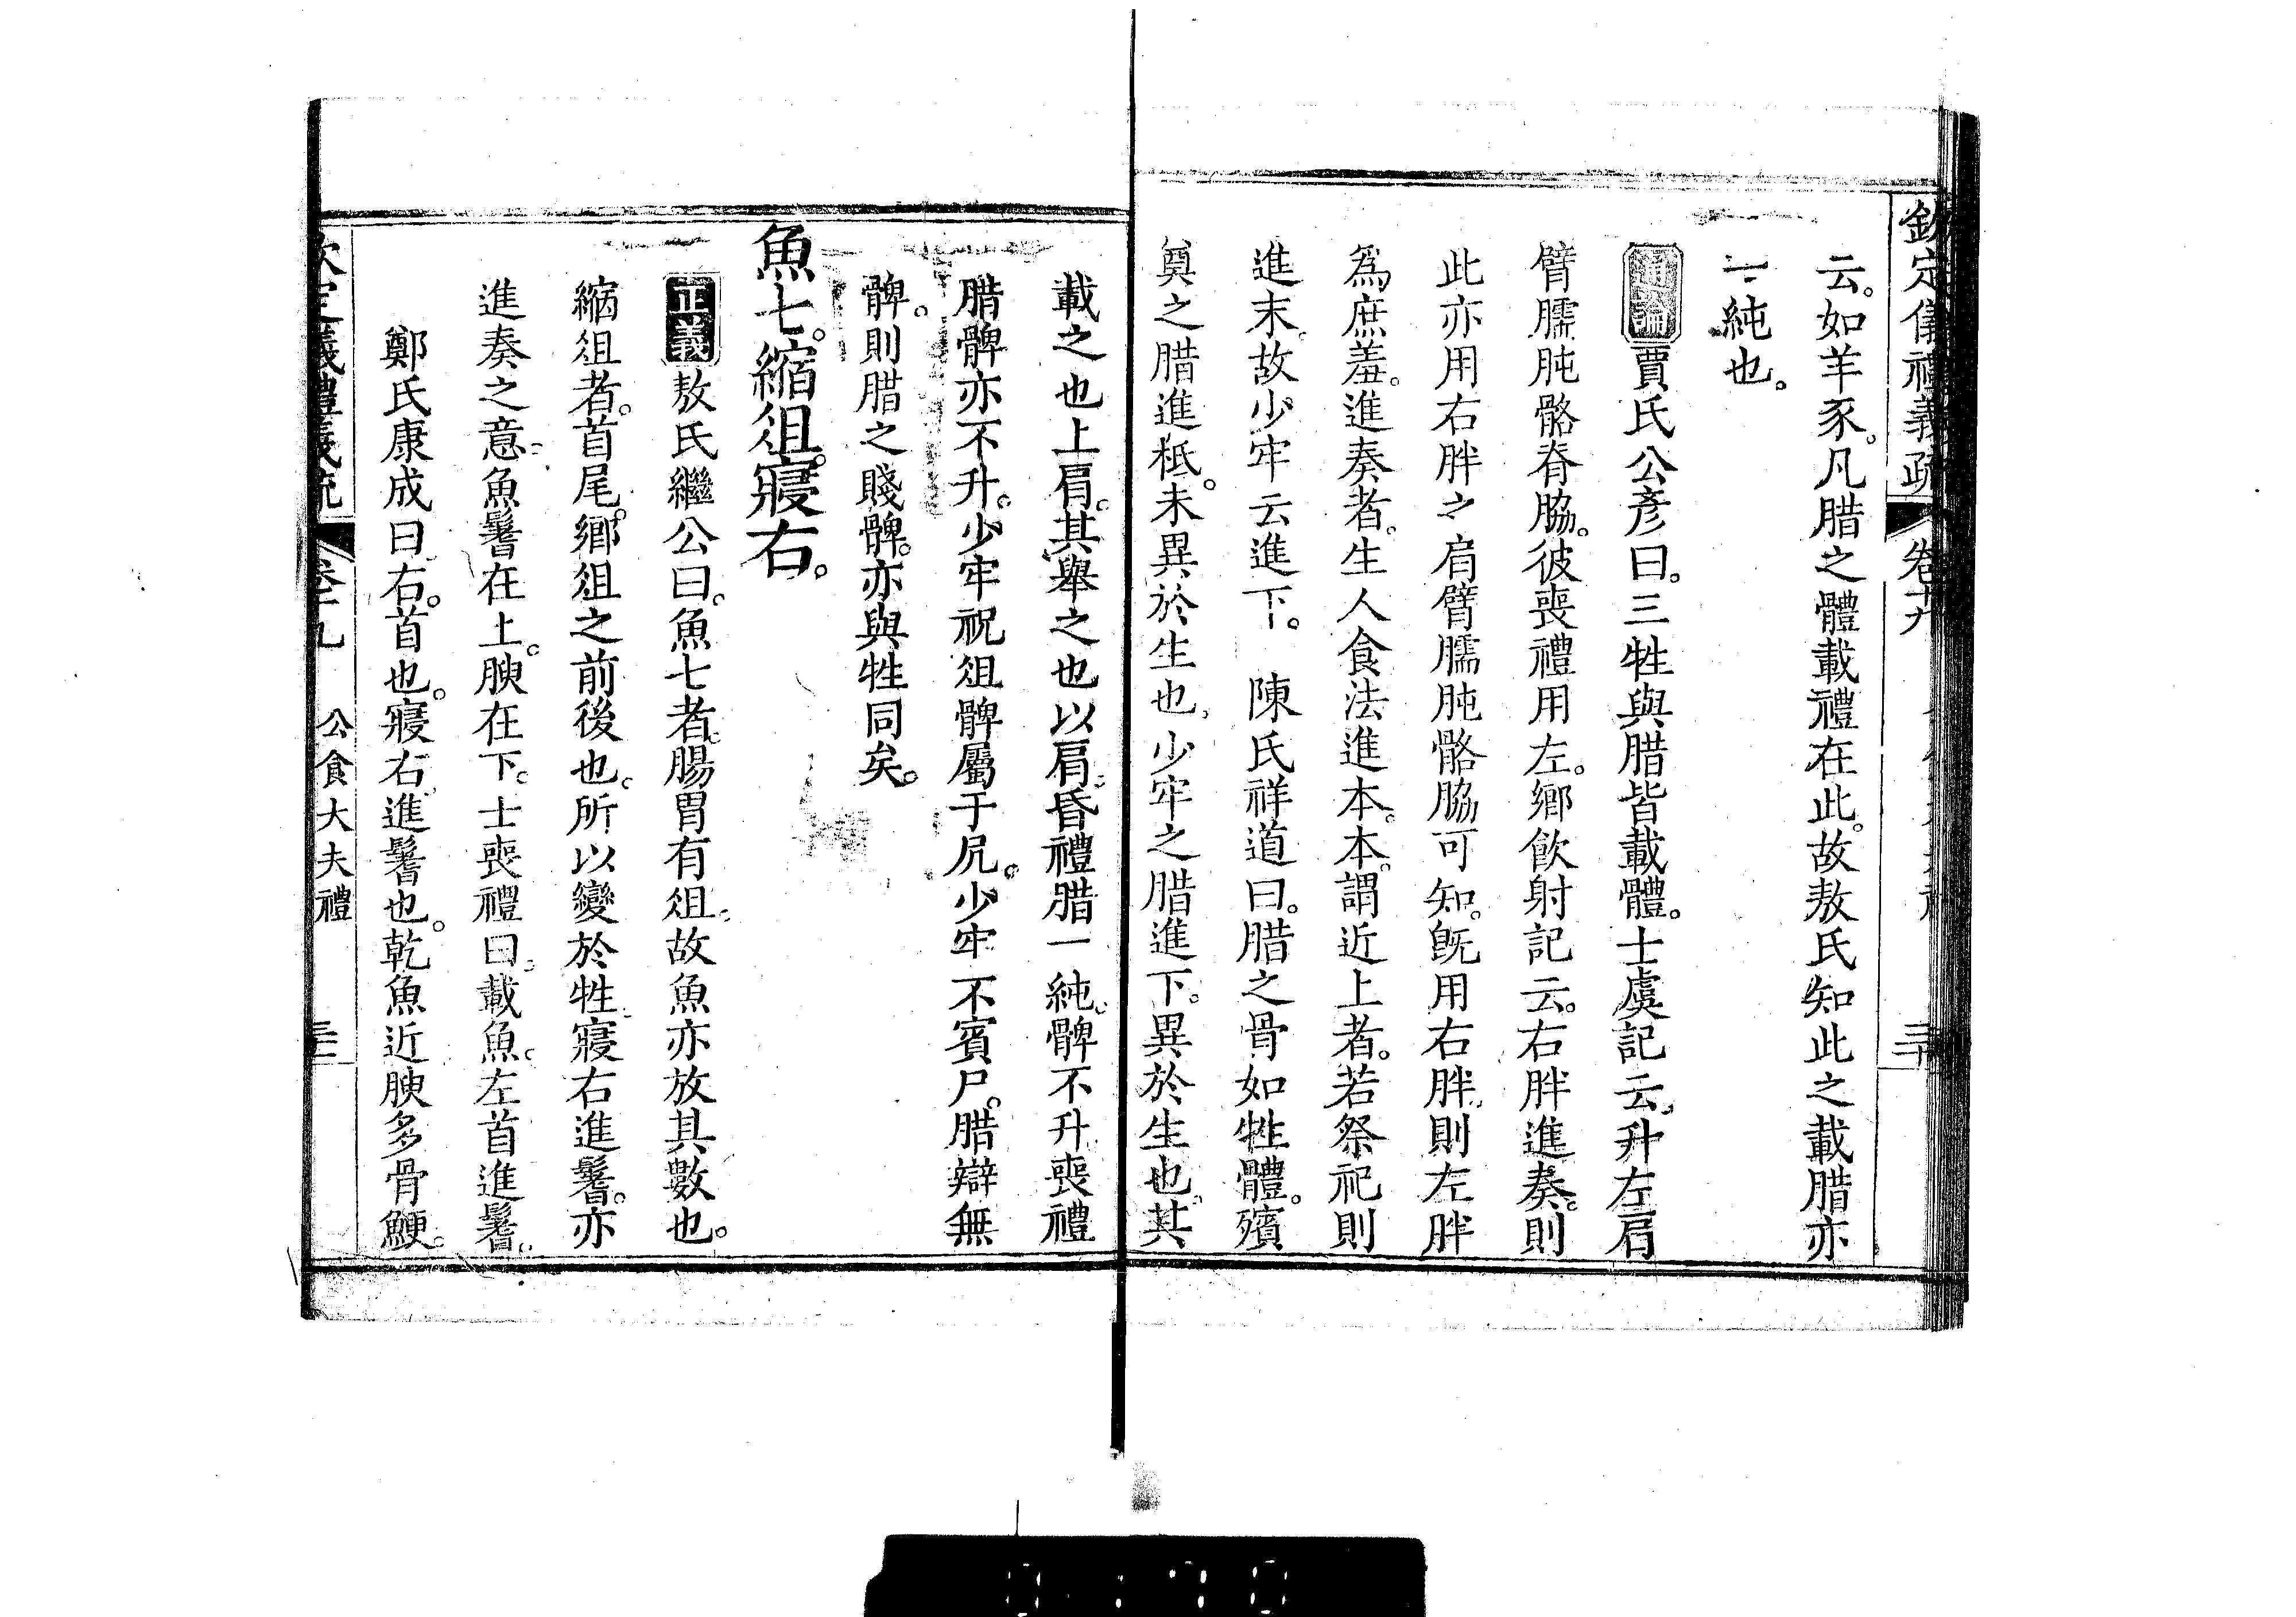 欽定儀禮義疏 卷十九 三十
云。如羊豕。凡腊之體載禮在此。故敖氏知此之載腊亦
一純也。
通論賈氏公彥曰。三牲與腊皆載體。士虞記云。升左肩
臂臑肫骼脊脇。彼喪禮用左。鄉飲射記云。右胖進奏。則
此亦用右胖之肩臂臑肫骼脇可知。既用右胖。則左胖
為庶羞。進奏者。生人食法進本。本。謂近上者。若祭祀則
進末。故少牢云進下。 陳氏祥道曰。腊之骨如牲體。殯
奠之腊進柢。未異於生也。少牢之腊進下。異於生也。其
載之也上肩。其舉之也以肩。昏禮腊一純。髀不升。喪禮
腊髀亦不升。少牢祝俎髀屬于尻。少牢不賓尸。腊辯無
髀。則腊之賤髀。亦與牲同矣。
魚七。縮俎。寢右。
正義敖氏繼公曰。魚七者。腸胃有俎。故魚亦放其數也。
縮俎者。首尾。鄉俎之前後也。所以變於牲。寢右進鬐。亦
進奏之意。魚鬐在上。腴在下。士喪禮曰。載魚。左首進鬐。
鄭氏康成曰。右。首也。寢右。進鬐也。乾魚近腴多骨鯁。
欽定儀禮義疏 卷十九 公食大夫禮 三十一